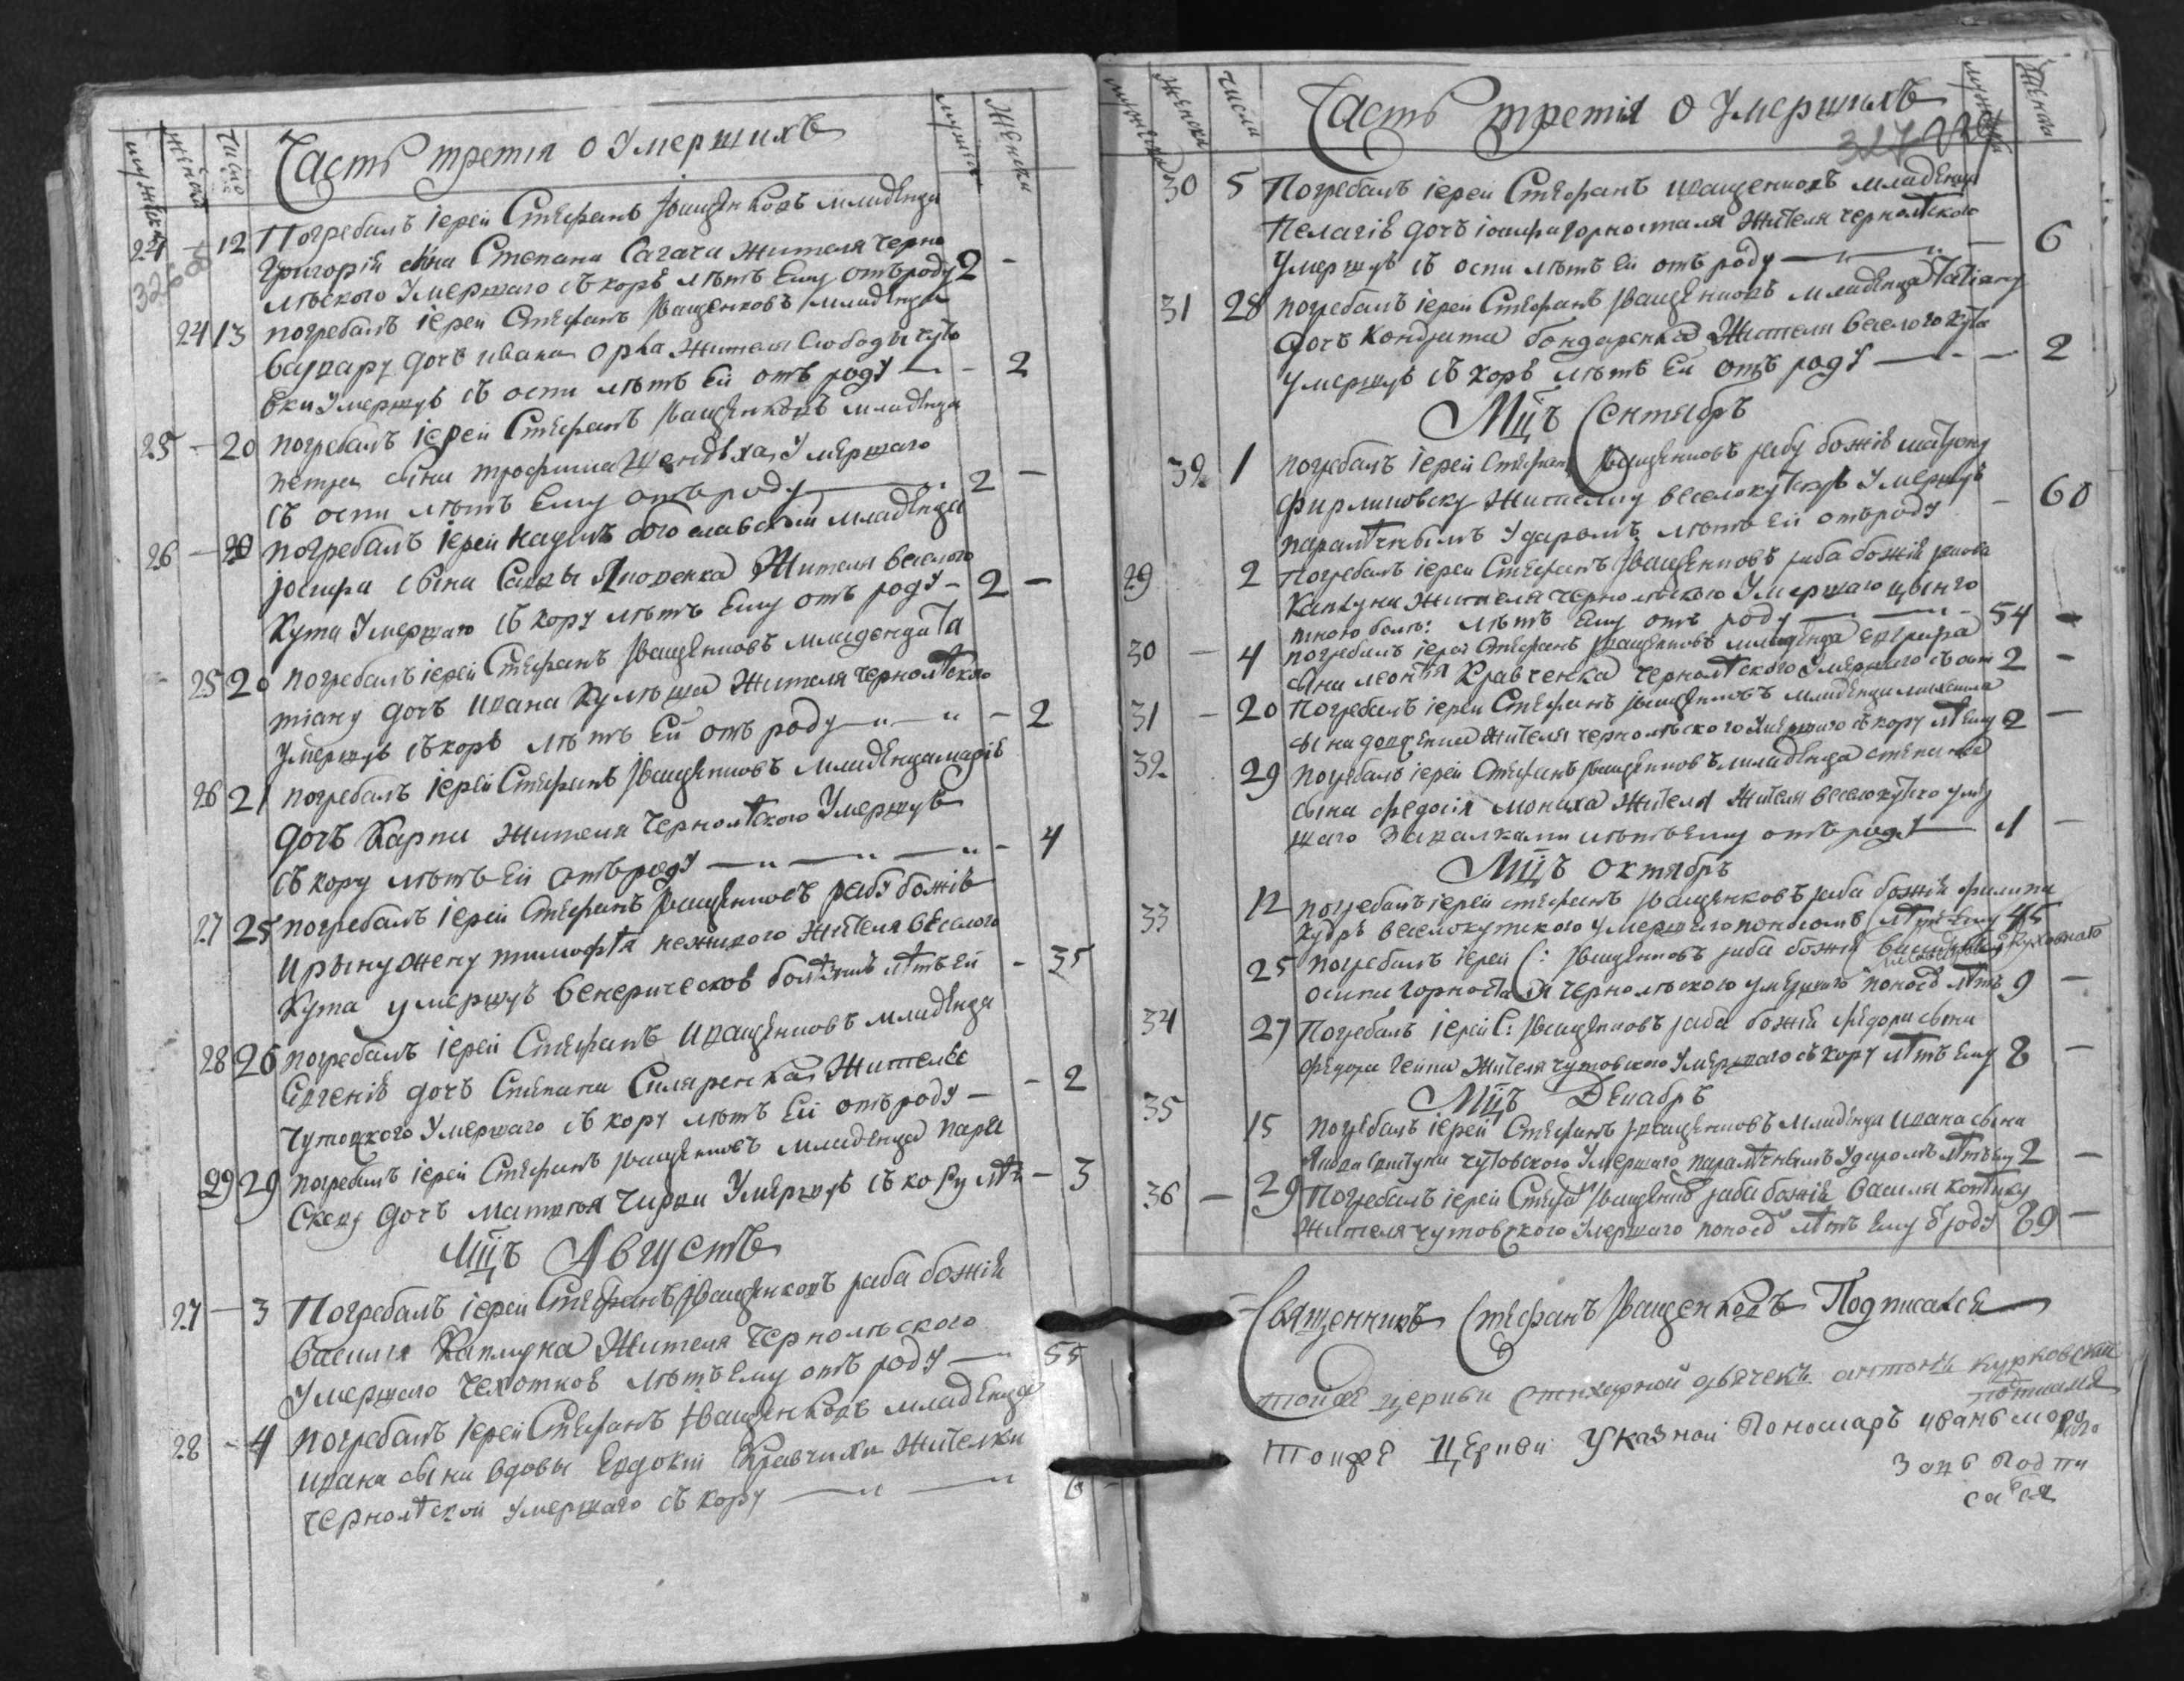 мужеска женска число Часть третїя о Умершихъ мужеска Женска
24 - 12 Погребалъ іерей Стефанъ Іващенковъ младенца
326
Григорїя сына Степана Сагача жителя черно
лѣского Умершаго съ корѣ лѣтъ Ему отъ роду 2 -
24 13 погребалъ іерей Стефанъ Іващенковъ младенца
варвару дочь ивана орла жителя слободы чуто
вки Умершую съ оспи лѣтъ Ей отъ роду - 2
25 - 20 погребалъ іерей Стефанъ Іващенковъ младенца
петра сына трофима Умершаго
съ оспи лѣтъ Ему отъ роду 2 -
26 - 20 погребалъ іерей богославский младенца
іосифа сына Савы Жителя веселого
Кута Умершаго съ кору лѣтъ Ему отъ роду - 2 -
25 20 погребалъ іерей Стефанъ Іващенковъ младенца та
тіану дочь Ивана Кулѣша Жителя чернолѣского
умершую съ корѣ лѣтъ Ей отъ роду - 2
26 21 погребалъ іерей Стефанъ Іващенковъ младенца марію
дочь Карпа жителя чернолѣского Умершую
съ кору лѣтъ Ей отъ роду - 4
27 25 погребалъ іерей Стефанъ Іващенковъ рабу божію
Ирыну жену тимофѣя жителя веселого
Кута умершую венерическою болѣзнію лѣтъ ей - 35
28 26 погребалъ іерей Стефанъ Иващенковъ младенца
Евгенію дочь Степана Силяренка Жителя
чутовского Умершаго съ кору лѣтъ Ей отъ роду - 2
29 29 погребалъ іерей Стефанъ Іващенковъ младенца пара
скеву дочь матвѣя чирви Умершую съ кору лѣтъ - 3
Мцъ Августъ
27 - 3 Погребалъ іерей Стефанъ Іващенковъ раба божїя
василя Каплуна Жителя чернолѣского
Умершаго чехоткою лѣтъ Ему отъ роду 55
28 - 4 погребалъ іерей Стефанъ Іващенковъ младенца
ивана сына вдовы Евдокіи Кравчихи жителки
чернолѣской умершаго съ кору 6 -
мужеска женска числа Часть третїя о Умершихъ мужеска Женска
327
30 5 Погребалъ іерей Стефанъ иващенковъ младенца
Пелагію дочь іосифа горносталя жителя чернолѣского
Умершую съ оспи лѣтъ ей отъ роду - 6
31 28 погребалъ іерей Стефанъ Іващенковъ младенца татіану
дочь Кондрата бондаренка Жителя веселого кута
умершую съ корѣ лѣтъ Ей отъ роду - 2
Мцъ Сентябрь
32 1 погребалъ іерей Стефанъ Іващенковъ рабу божїю матрону
жителку веселокутскую Умершую
паралѣчнымъ Ударомъ лѣтъ ей отъ роду - 60
29 2 Погребалъ іерей Стефанъ Іващенковъ раба божїя якова
Каплуна жителя чернолѣского Умершаго цынго
тною болѣ: лѣтъ Ему отъ роду 54 -
30 - 4 погребалъ іерей Стефанъ Іващенковъ младенца
сына леонтія Кравченка чернолѣского умершаго съ оспи 2 -
31 - 20 Погребалъ іерей Стефанъ Іващенковъ младенца михаила
сына жителя чернолѣского умершаго съ кору лѣтъ Ему 2 -
32 29 погребалъ іерей Стефанъ Іващенковъ младенца степана
сына федосія монаха жителя жителя веселокутского умер
шаго завалками лѣтъ Ему отъ роду 1 -
Мцъ октябрь
33 12 погребалъ іерей стефанъ Іващенковъ раба божїя филипа
веселокутского умершаго поносомъ лѣтъ Ему 45
25 погребалъ іерей С: Іващенковъ раба божїя
осипа горносталя чернолѣского умершаго понос лѣтъ 9 -
34 27 Погребалъ іерей С: Іващенковъ раба божїя федора сына
федора жителя чутовского Умершаго съ кору лѣтъ Ему 8 -
Мцъ Декабрь
35 15 погребалъ іерей Стефанъ Іващенковъ младенца Ивана сына
чутовского Умершаго паралѣчнымъ Ударомъ лѣтъ Ему 2 -
36 - 29 Погребалъ іерей Стефанъ Іващенковъ раба божїя василя
Жителя чутовского Умершаго понос лѣтъ Ему о роду 89 -
Священникъ Стефанъ Іващенковъ Подписался
тойже церкви стихарной дьячекъ антонъ курковский
подписался
тойже Церкви Указной Пономаръ иванъ моро
зовъ подпи
сался